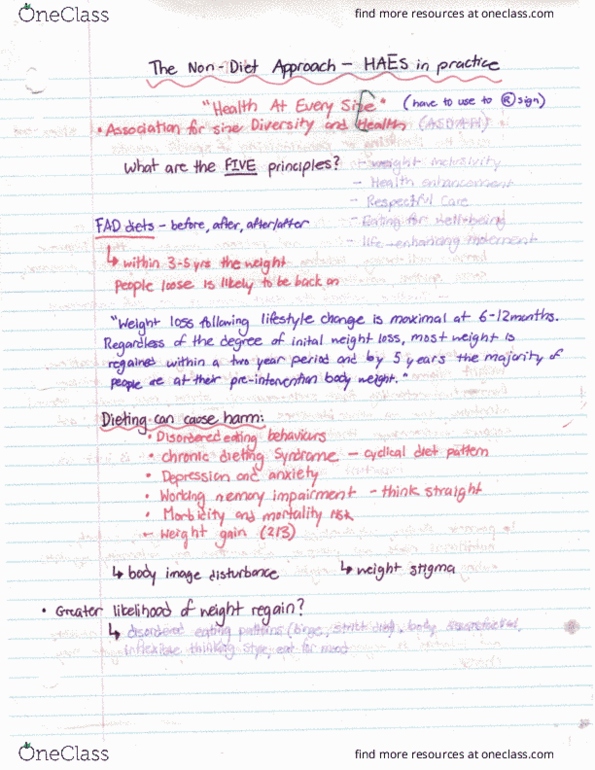 OneClass
find more resources at oneclass.com
The Non-Diet Approach – HAES in practice
"Health At Every Size" (have to use to ® sign)
• Association for size Diversity and Health (ASDAH)
What are the FIVE principles? - weight inclusivity
- Health enhancement
- Respectful Care
FAD diets - before, after, after/after
- Eating for well-being
- life-enhancing movement
↳ within 3-5 yrs the weight
people loose is likely to be back on
"Weight loss following lifestyle change is maximal at 6-12 months.
Regardless of the degree of inital weight loss, most weight is
regained within a two year period and by 5 years the majority of
people are at their pre-intervention body weight."
Dieting can cause harm:
• Disordered eating behaviours
• chronic dieting Syndrome – cyclical diet pattern
• Depression and anxiety
• Working memory impairment - think straight
• Morbidity and mortality risk
- Weight gain (2/3)
↳ body image disturbance ↳ weight stigma
• Greater likelihood of weight regain?
↳ disordered eating patterns (binge, strict diet), body
inflexible thinking style, eat for mood
OneClass
find more resources at oneclass.com